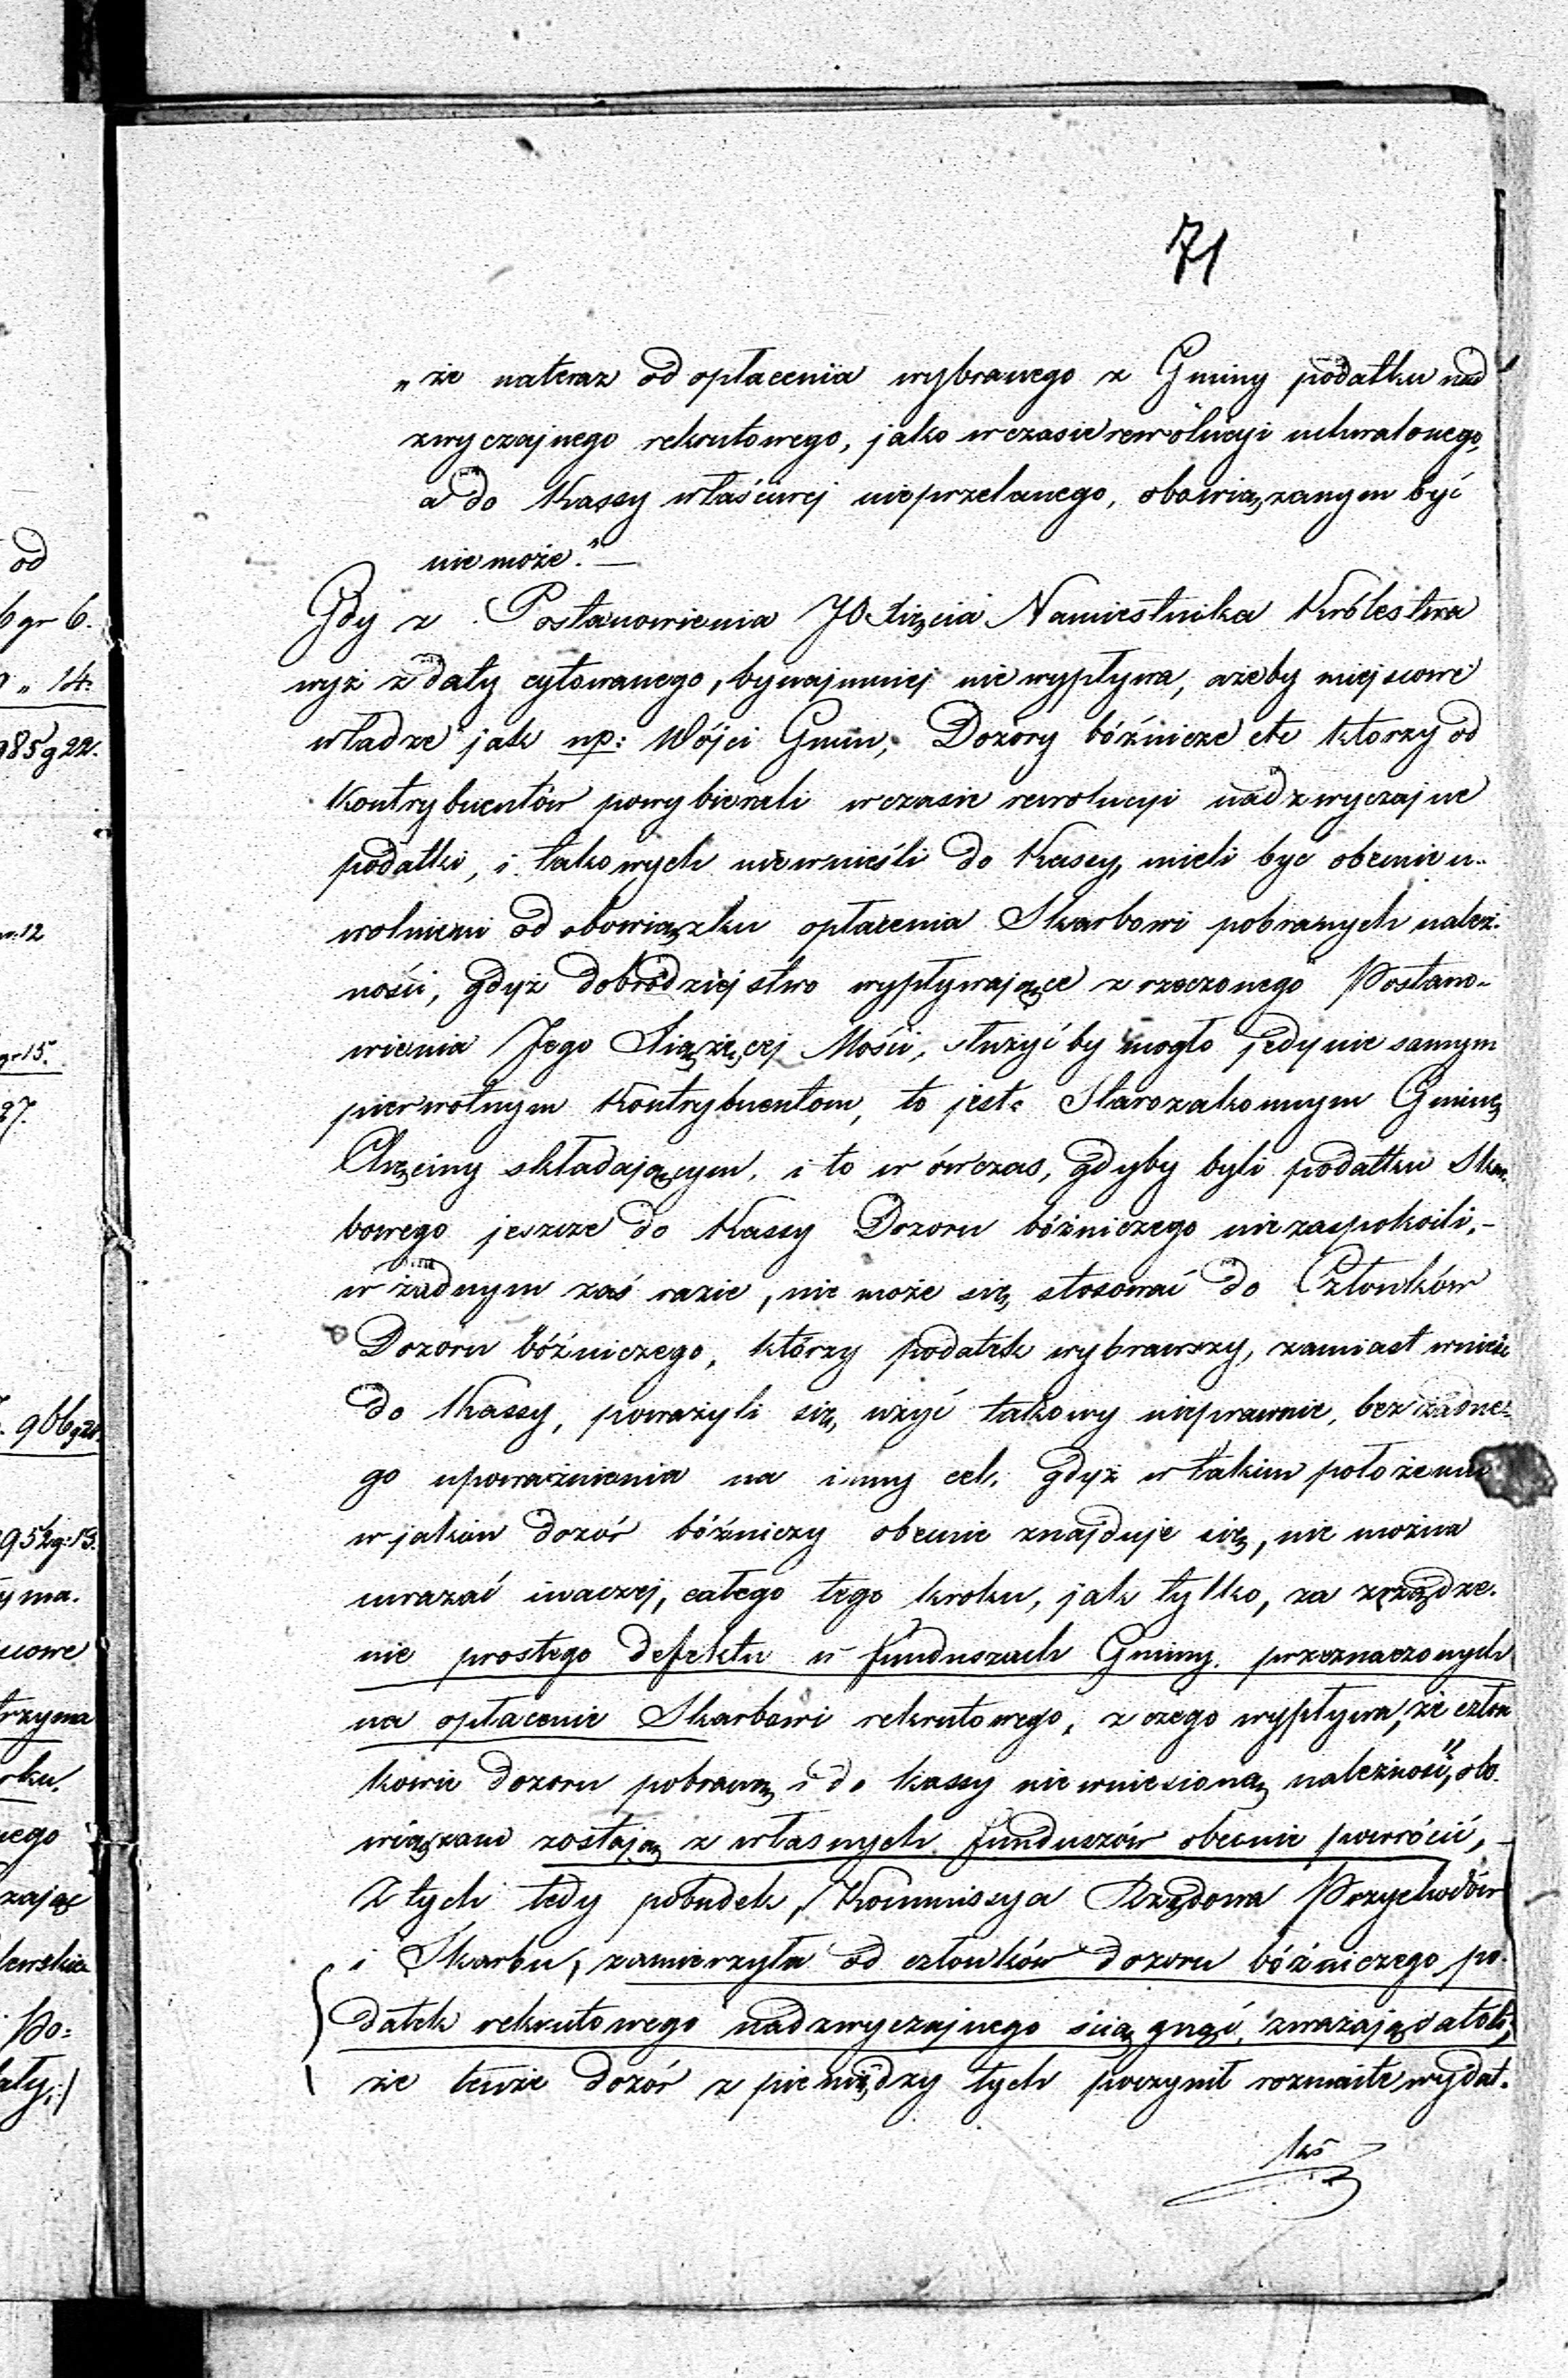 71
„że nateraz od opłacenia wybranego z Gminy podatku nad
zwyczajnego rekrutowego, jako w czasie rewolucyi uchwalonego,
a do Kassy właściwej nieprzelanego, obowiązanym być
nie może."—
Gdy z Postanowienia JO Xięcia Namiestnika Królestwa
wyż z daty cytowanego, bynajmniej nie wypływa, ażeby miejscowe
władze jak np: Wójci Gmin, Dozory bóżnicze etc którzy od
Kontrybuentów powybierali w czasie rewolucyi nadzwyczajne
podatki, i takowych niewnieśli do Kassy, mieli być obecnie u-
wolnieni od obowiązku opłacenia Skarbowi pobranych należ-
ności, gdyż dobrodziejstwo wypływające z rzeczonego Postano-
wienia Jego Xiążęcej Mości, służyć by mogło jedynie samym
pierwotnym Kontrybuentom, to jest: Starozakonnym Gminę
Chęciny składającym, i to w ówczas, gdyby byli podatku Skar-
bowego jeszcze do Kassy Dozoru bóżniczego niezaspokoili,-
w żadnym zaś razie, nie może się stosować do Członków
Dozoru bóżniczego, którzy podatek wybrawszy, zamiast wnieść
do Kassy, poważyli się, użyć takowy nieprawnie, bez żadne-
go upoważnienia na inny cel, gdyż w takim położeniu
w jakim dozór bóżniczy obecnie znajduje się, nie można
uważać inaczej, całego tego kroku, jak tylko, za zrządze-
nie prostego defektu w funduszach Gminy, przeznaczonych
na opłacenie Skarbowi rekrutowego, z czego wypływa, że człon
kowie dozoru pobraną i do kassy nie wniesioną należność, obo-
wiązani zostają z własnych funduszów obecnie powrócić,-
Z tych tedy pobudek, Kommissya Rządowa Przychodów
i Skarbu, zamierzyła od członków dozoru bóżniczego po-
datek rekrutowego nadzwyczajnego ściągnąć, zważając atoli,
że tenże dozór z pieniędzy tych poczynił rozmaite wydat-
ki
od
6 gr 6.
" 14.
985 g 22.
12
gr 15.
27.
966 g 20.
952 g: 13.
ma.
trzyma
rku.
nego
zając
Po=